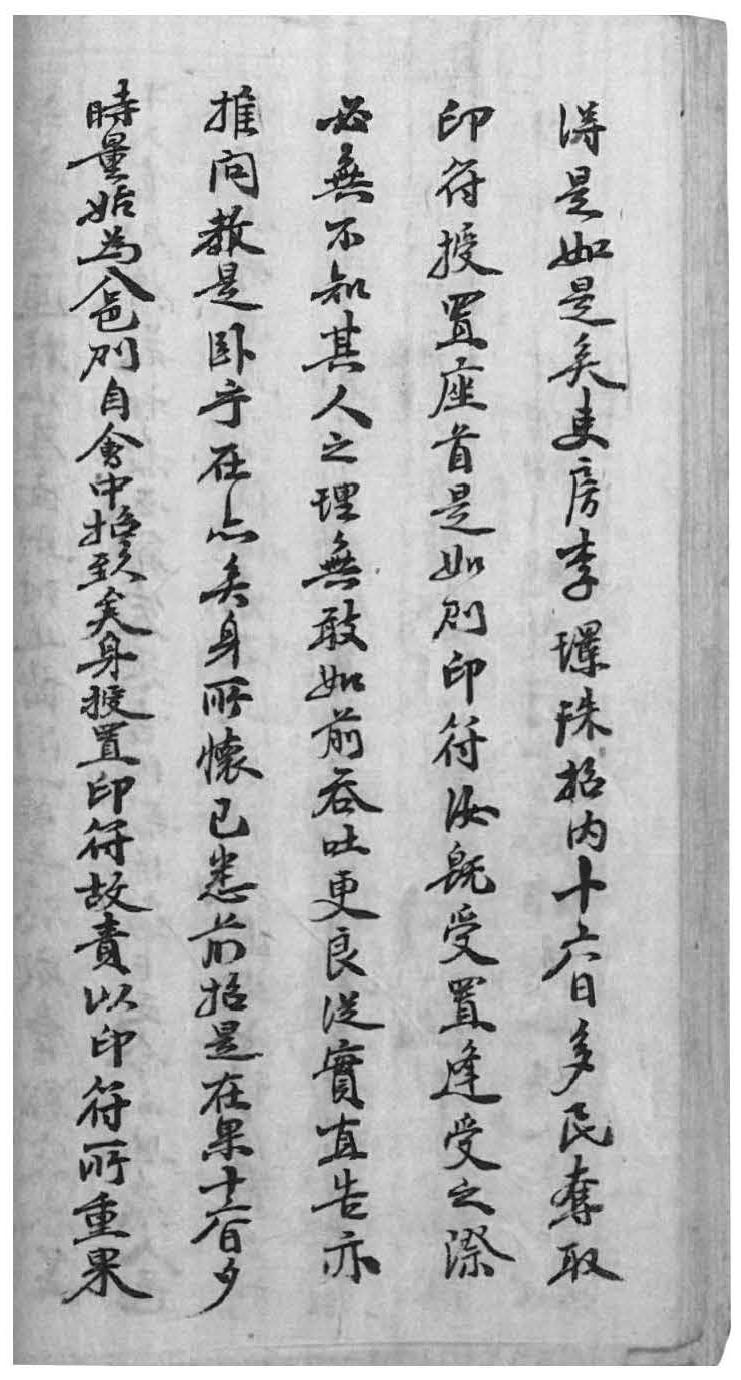 淂是如是矣吏房李璪珠招内十六日多民奪取
印符授置座首是如則印符汝旣受置逢受之際
必無不知其人之理無敢如前呑吐更良從實直告亦
推問敎是臥乎在亦矣身所懷已悉前招是在果十六日夕
時量始爲入邑則自會中招致矣身授置印符故責以印符所重果